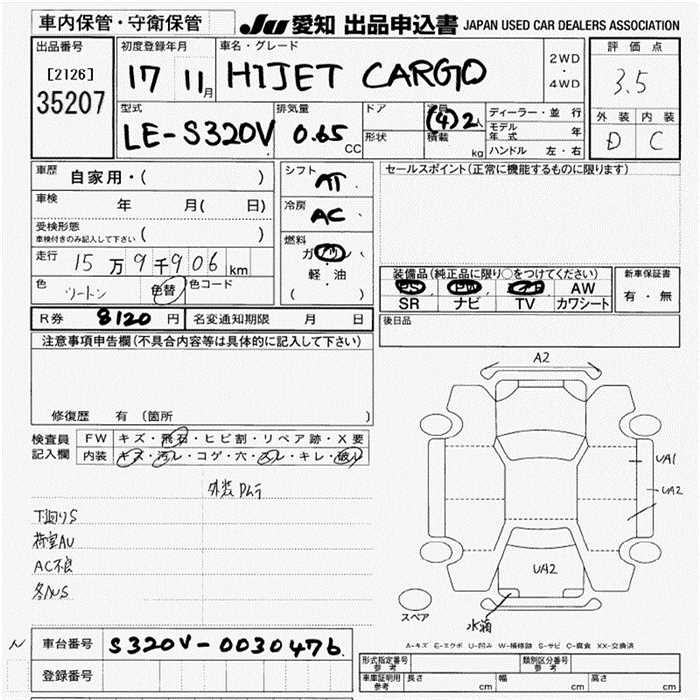 車内保管・守衛保管
JU 愛知 出品申込書 JAPAN USED CAR DEALERS ASSOCIATION
出品番号
[2126]
35207
初度登録年月
17 11月
車名・グレード
HIJET CARGO
2WD
・
4WD
評価点
3.5
外装 内装
D C
型式
LE-S320V
排気量
0.65
CC
ドア
形状
定員
(4)2人
積載
kg
ディーラー・並行
モデル年式 年
ハンドル 左・右
車歴 自家用・( )
車検 年 月( 日)
受検形態
車検付きのみ記入して下さい ( )
走行 15万9千906km
色 ツートン 色替 色コード
シフト
AT
冷房
AC
燃料
ガソリン
・
軽・油
( )
セールスポイント(正常に機能するものに限ります)
装備品(純正品に限り○をつけてください)
PS PW エアB AW
SR ナビ TV カワシート
新車保証書
有・無
R券 8120円 名変通知期限 月 日
後日品
注意事項申告欄(不具合内容等は具体的に記入して下さい)
修復歴 有(箇所 )
検査員
記入欄
FW キズ・飛石・ヒビ割・リペア跡・X要
内装 キズ・汚レ・コゲ・穴・スレ・キレ・破レ
外装
下廻りS
荷室AU
AC不良
各AUS
A2
UA1
UA2
UA2
スペア
A-キズ E-エクボ U-凹み W-補修跡 S-サビ C-腐食 XX-交換済
N
車台番号 S320V-0030476
登録番号
形式指定番号
参考
類別区分番号
参考
車庫証明用
参考
長さ cm 幅 cm 高さ cm